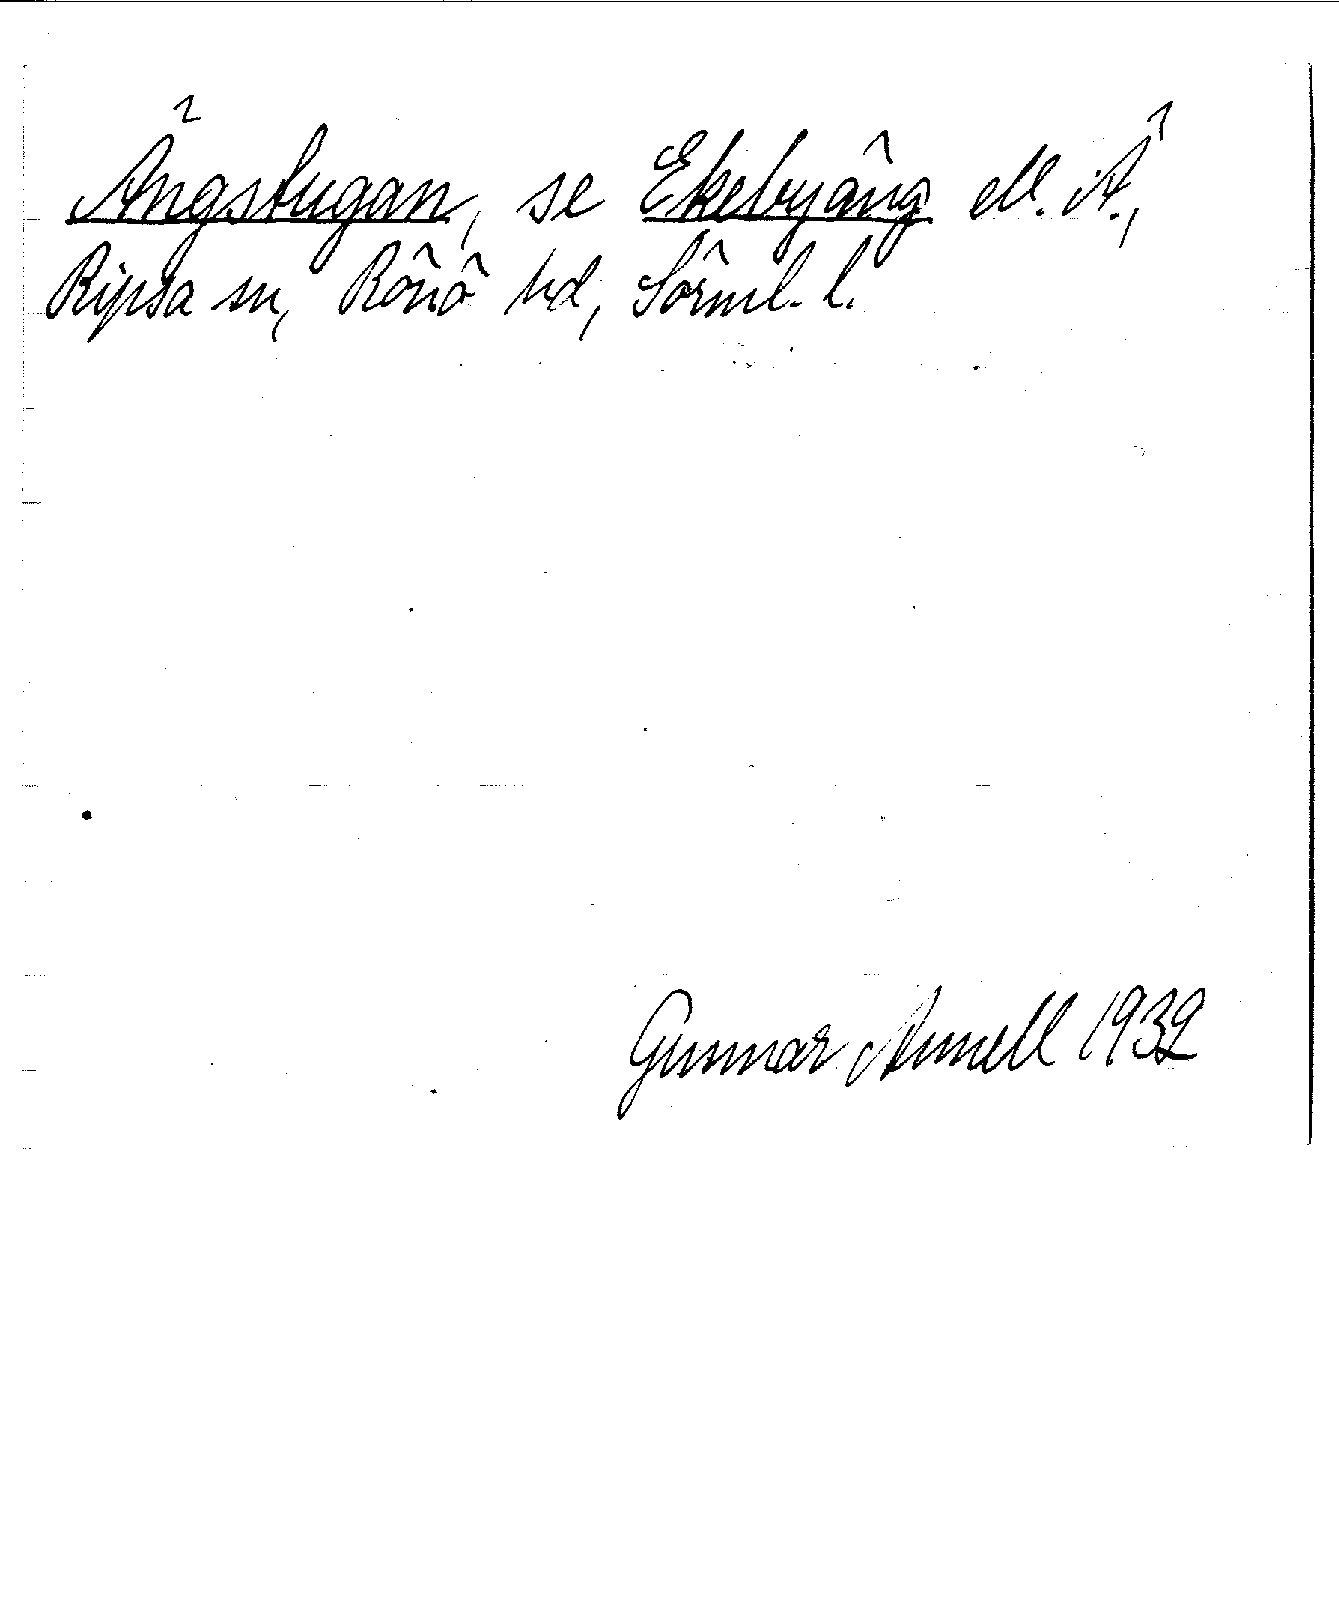 Ängstugan, se Ekebyäng el. Ä.,
Ripsa sn, Rönö hd, Sörml. l.
Gunnar Annell 1932